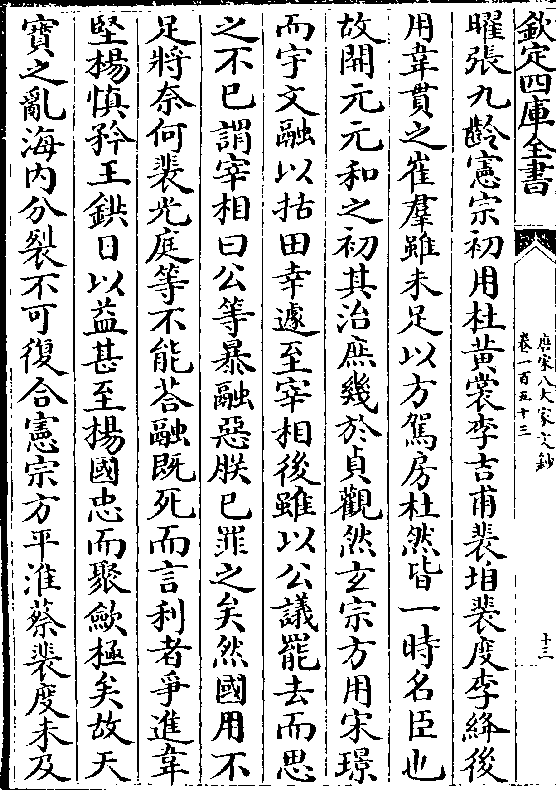 欽定四庫全書
唐宋八大家文鈔
卷一百五十三
十三
曜張九齡憲宗初用杜黃裳李吉甫裴垍裴度李絳後
用韋貫之崔羣雖未足以方駕房杜然皆一時名臣也
故開元元和之初其治庶幾於貞觀然玄宗方用宋璟
而宇文融以括田幸遽至宰相後雖以公議罷去而思
之不已謂宰相曰公等暴融惡朕已罪之矣然國用不
足將奈何裴光庭等不能荅融既死而言利者爭進韋
堅楊慎矜王鉷日以益甚至楊國忠而聚歛極矣故天
寶之亂海內分裂不可復合憲宗方平淮蔡裴度未及